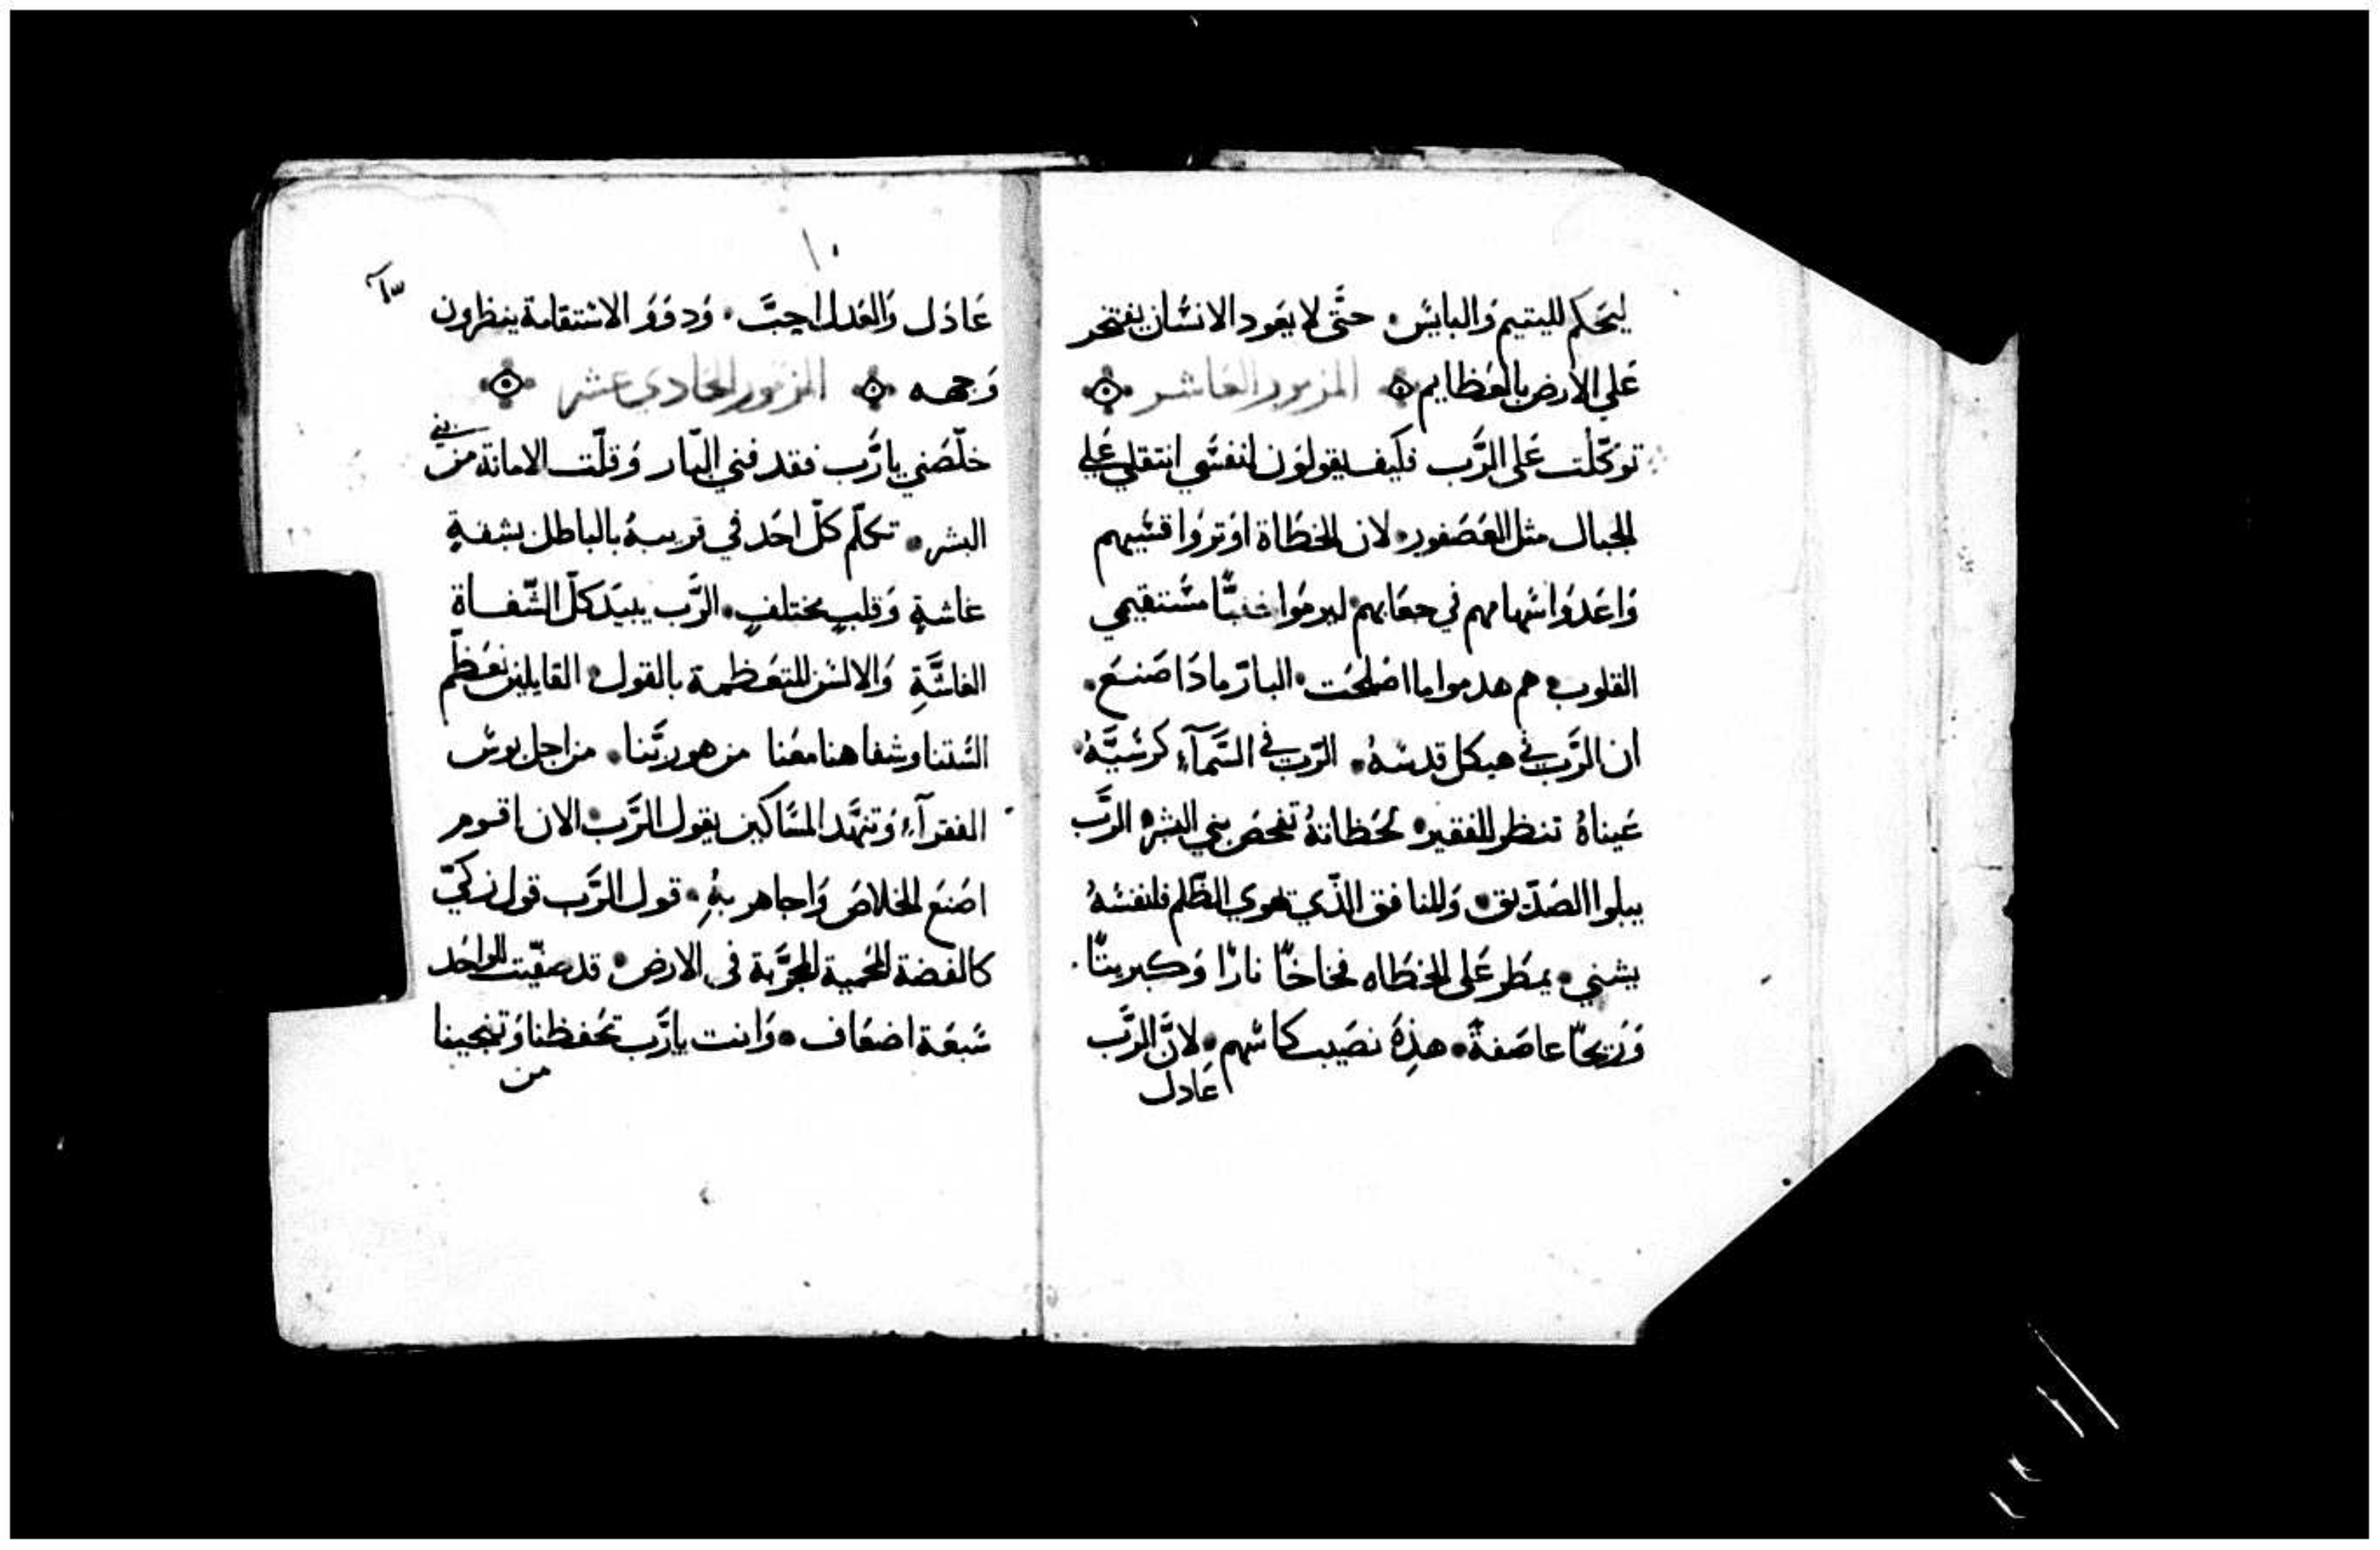 ليَحَكم لليتيم وَالبايسُ • حتَّى لا يعَود الانسُان يفتخر
عَلي الارض بالعَظايم ۞ المزمور العَاشر ۞
توكّلت عَلى الرَّب فكَيف يقولوَن لنفسُي انتقلي عَلي
الجبال مثل العَصَفور • لان الخطَاة اوَتروَا قسُيهم
وَاعَدوَا سُهامهم في جعَابهم ليرموَا خفيًّا مسُتقيمي
القلوب • هم هدموا ما اصَلحَت • البارّ مادَا صَنعَ •
ان الرَّب في هيكل قدسُهُ • الرَّب في السَّمآءِ كرسُيَّهُ •
عَيناهُ تنظر للفقير • لحَظاتهُ تفحصَ بني البشر • الرَّب
يبلوا الصَدّيق • وَالمنافق الذّي تهوي الظّلم فلنفسُهُ
يشني • يمطَر عَلى الخطَاه فخاخًا نارًا وَكبريتًا •
وَرَيحًا عاصَفةً • هذِهَ نصَيب كاسُهم • لانَّ الرَّب
عَادل
١٠
عَادَل وَالعَدل احِبَّ • وَدوَوَ الاسُتقامة ينظرون
وَجهه ۞ المزمور الحَادي عَشر ۞
خلّصَني يا رَّب فقد فني البّار وَقلّت الامانة من بني
البشر • تكلّم كلّ احَد في قريبهُ بالباطل بشفةٍ
غاشةٍ وَقلبٍ مختلفٍ • الرَّب يبيَد كلّ الشّفاة
الغاشَّةِ وَالالسُن المتعَظمة بالقول • القايلين نعَظّم
السُنتنا وشفاهنا معَنا من هو ربَّنا • من اجل بوسُ
الفقرآءِ وَتنهَّد المسَاكين يقول الرَّب • الان اقوم
اصَنعَ الخلاصَ وَاجاهر بهُ • قول الرَّب قول زكيّ
كالفضة المحَمية المجرَّبة في الارض • قد صفّيت الواحَد
سَبعَة اضعَاف • وَانت يا رَّب تحَفظنا وَتنجينا
من